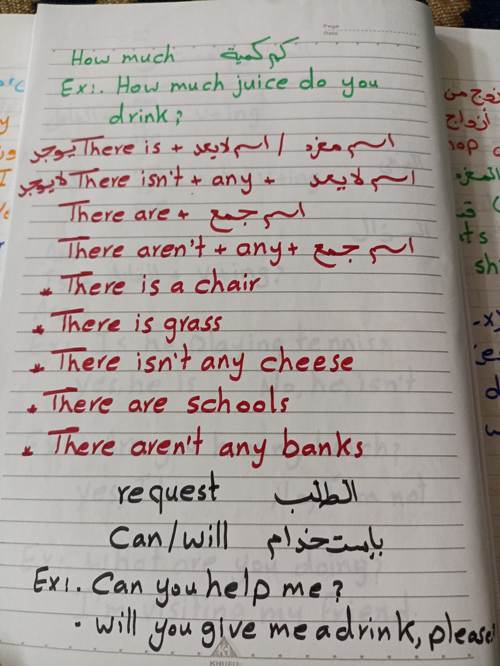 How much كم كمية
Ex:. How much juice do you
drink?
يوجد There is + اسم لا يعد / اسم مفرد
لا يوجد There isn't + any + اسم لا يعد
There are + اسم جمع
There aren't + any + اسم جمع
* There is a chair
* There is grass
* There isn't any cheese
* There are schools
* There aren't any banks
request الطلب
Can/will بإستخدام
Ex:. Can you help me?
. Will you give me a drink, please